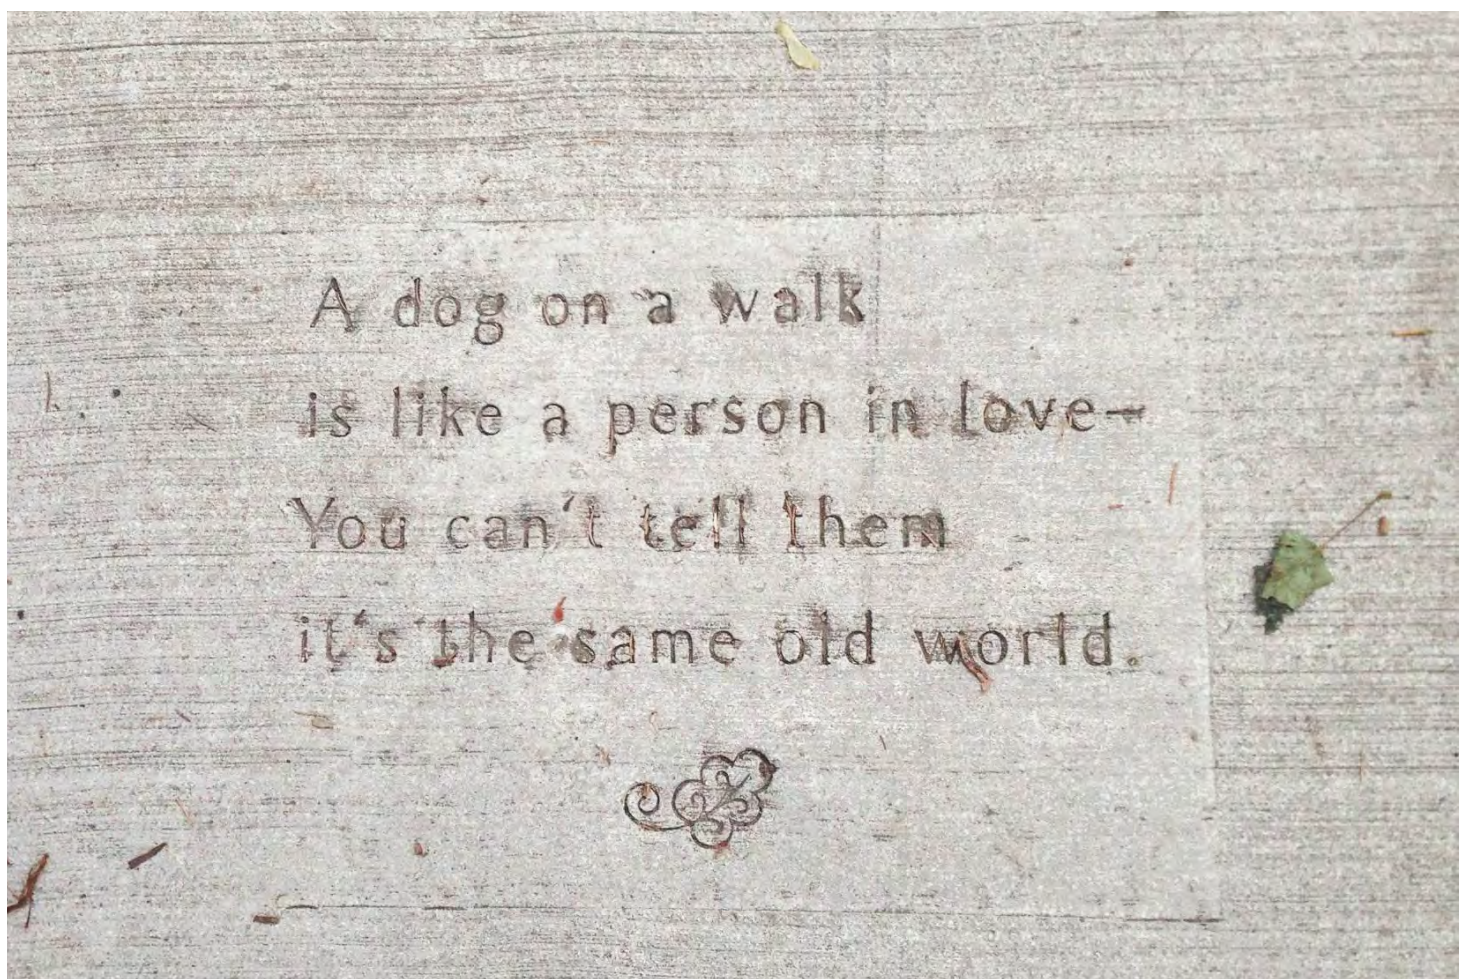 A dog on a walk
is like a person in love—
You can't tell them
it's the same old world.